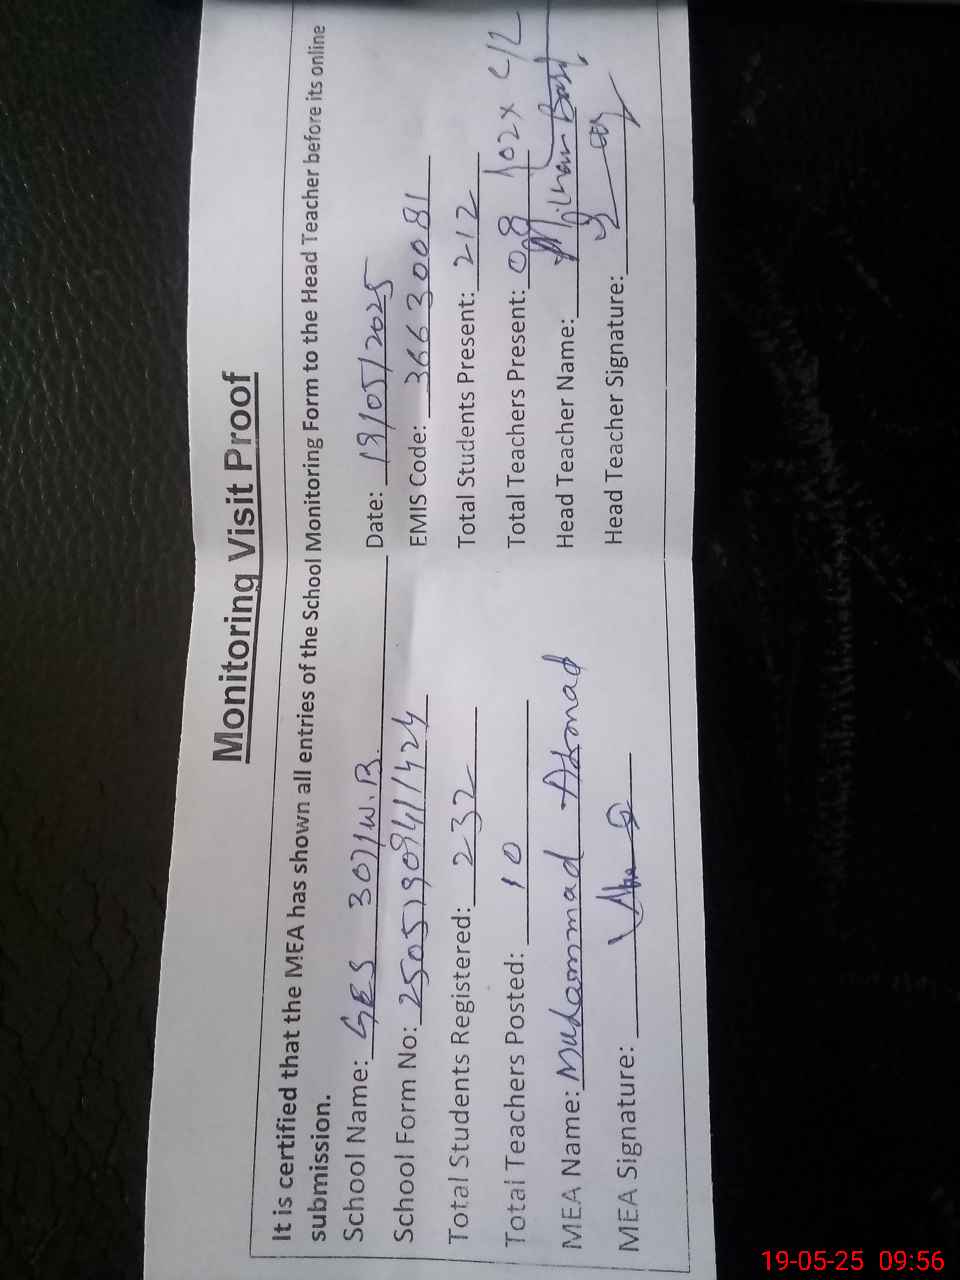 Monitoring Visit Proof
It is certified that the MEA has shown all entries of the School Monitoring Form to the Head Teacher before its online
submission.
School Name: GES 307/W.B. Date: 19/05/2025
School Form No: EMIS Code: 36630081
Total Students Registered: 232 Total Students Present: 212
Total Teachers Posted: 10 Total Teachers Present: 08 02x C/L
MEA Name: Muhammad Head Teacher Name:
MEA Signature: Head Teacher Signature:
19-05-25 09:56